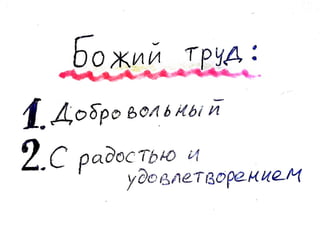 Божий труд:
1. Добровольный
2. С радостью и
удовлетворением